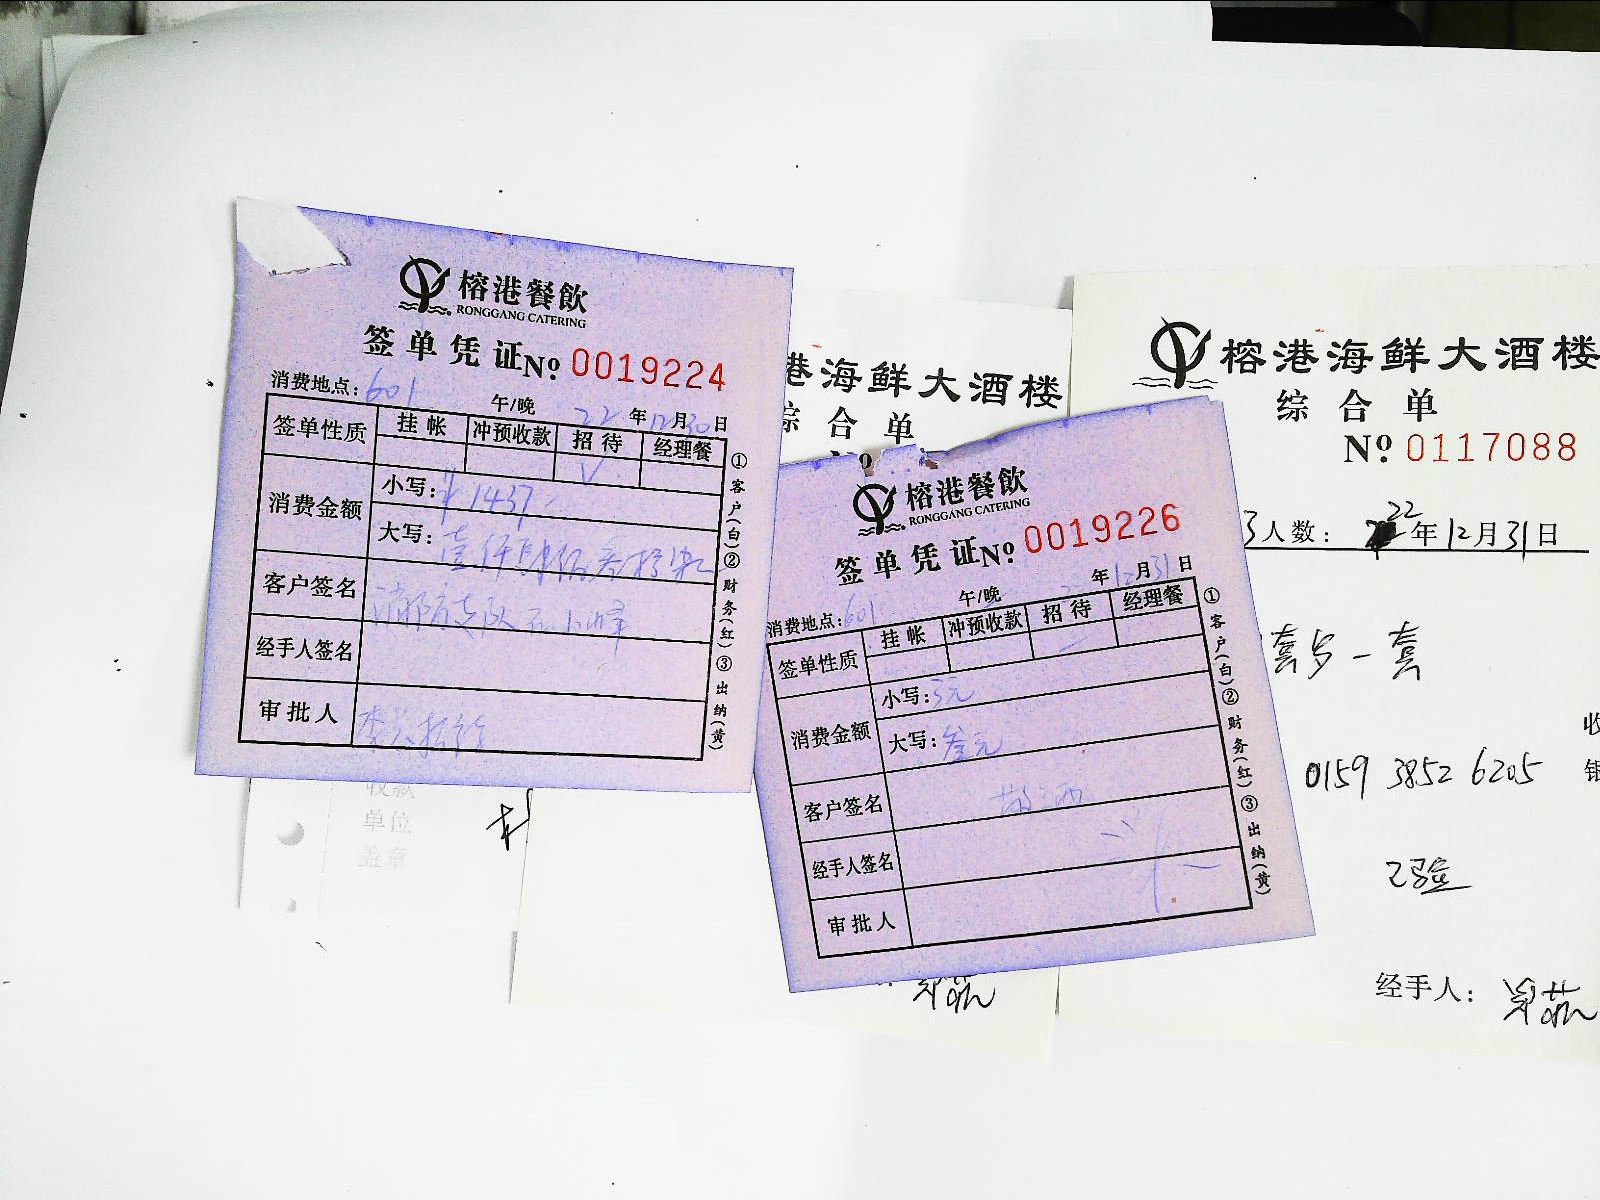 榕港餐飲
RONGGANG CATERING
签单凭证 No 0019224
消费地点: 601 午/晚 22年12月30日
签单性质 挂帐 冲预收款 招待 经理餐
√
消费金额 小写: ¥1437-
大写: 壹仟肆佰叁拾柒
客户签名 消防支队
经手人签名
审批人
①客户(白)②财务(红)③出纳(黄)
收款
单位
盖章
港海鲜大酒楼
综合单
No
榕港餐飲
RONGGANG CATERING
签单凭证 No 0019226
年12月31日
消费地点: 601 午/晚
签单性质 挂帐 冲预收款 招待 经理餐
消费金额 小写: 3元
大写: 叁元
客户签名
经手人签名
审批人
①客户(白)②财务(红)③出纳(黄)
榕港海鲜大酒楼
综合单
No 0117088
人数: 22年12月31日
0159 3852 6205
收
银
经手人: